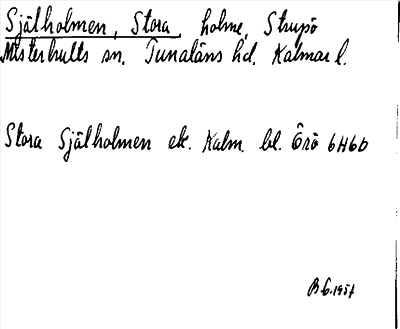 Själholmen, Stora, holme, Strupö
Misterhults sn. Tunaläns hd. Kalmar l.
Stora Själholmen ek. Kalm. bl. Örö 6H6D
1957